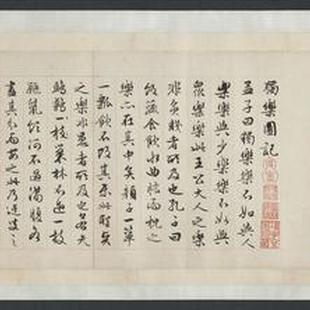 獨樂園記
孟子曰獨樂樂不如與人
樂樂與少樂樂不如與
衆樂樂此王公大人之樂
非貧賤者所及也孔子曰
飯蔬食飲水曲肱而枕之
樂亦在其中矣顏子一簞
一瓢飲不改其樂此聖賢
之樂非愚者所及也若夫
鷦鷯一枝巢林不過一枝
鼴鼠飲河不過滿腹各
盡其分而安之此乃迂叟之